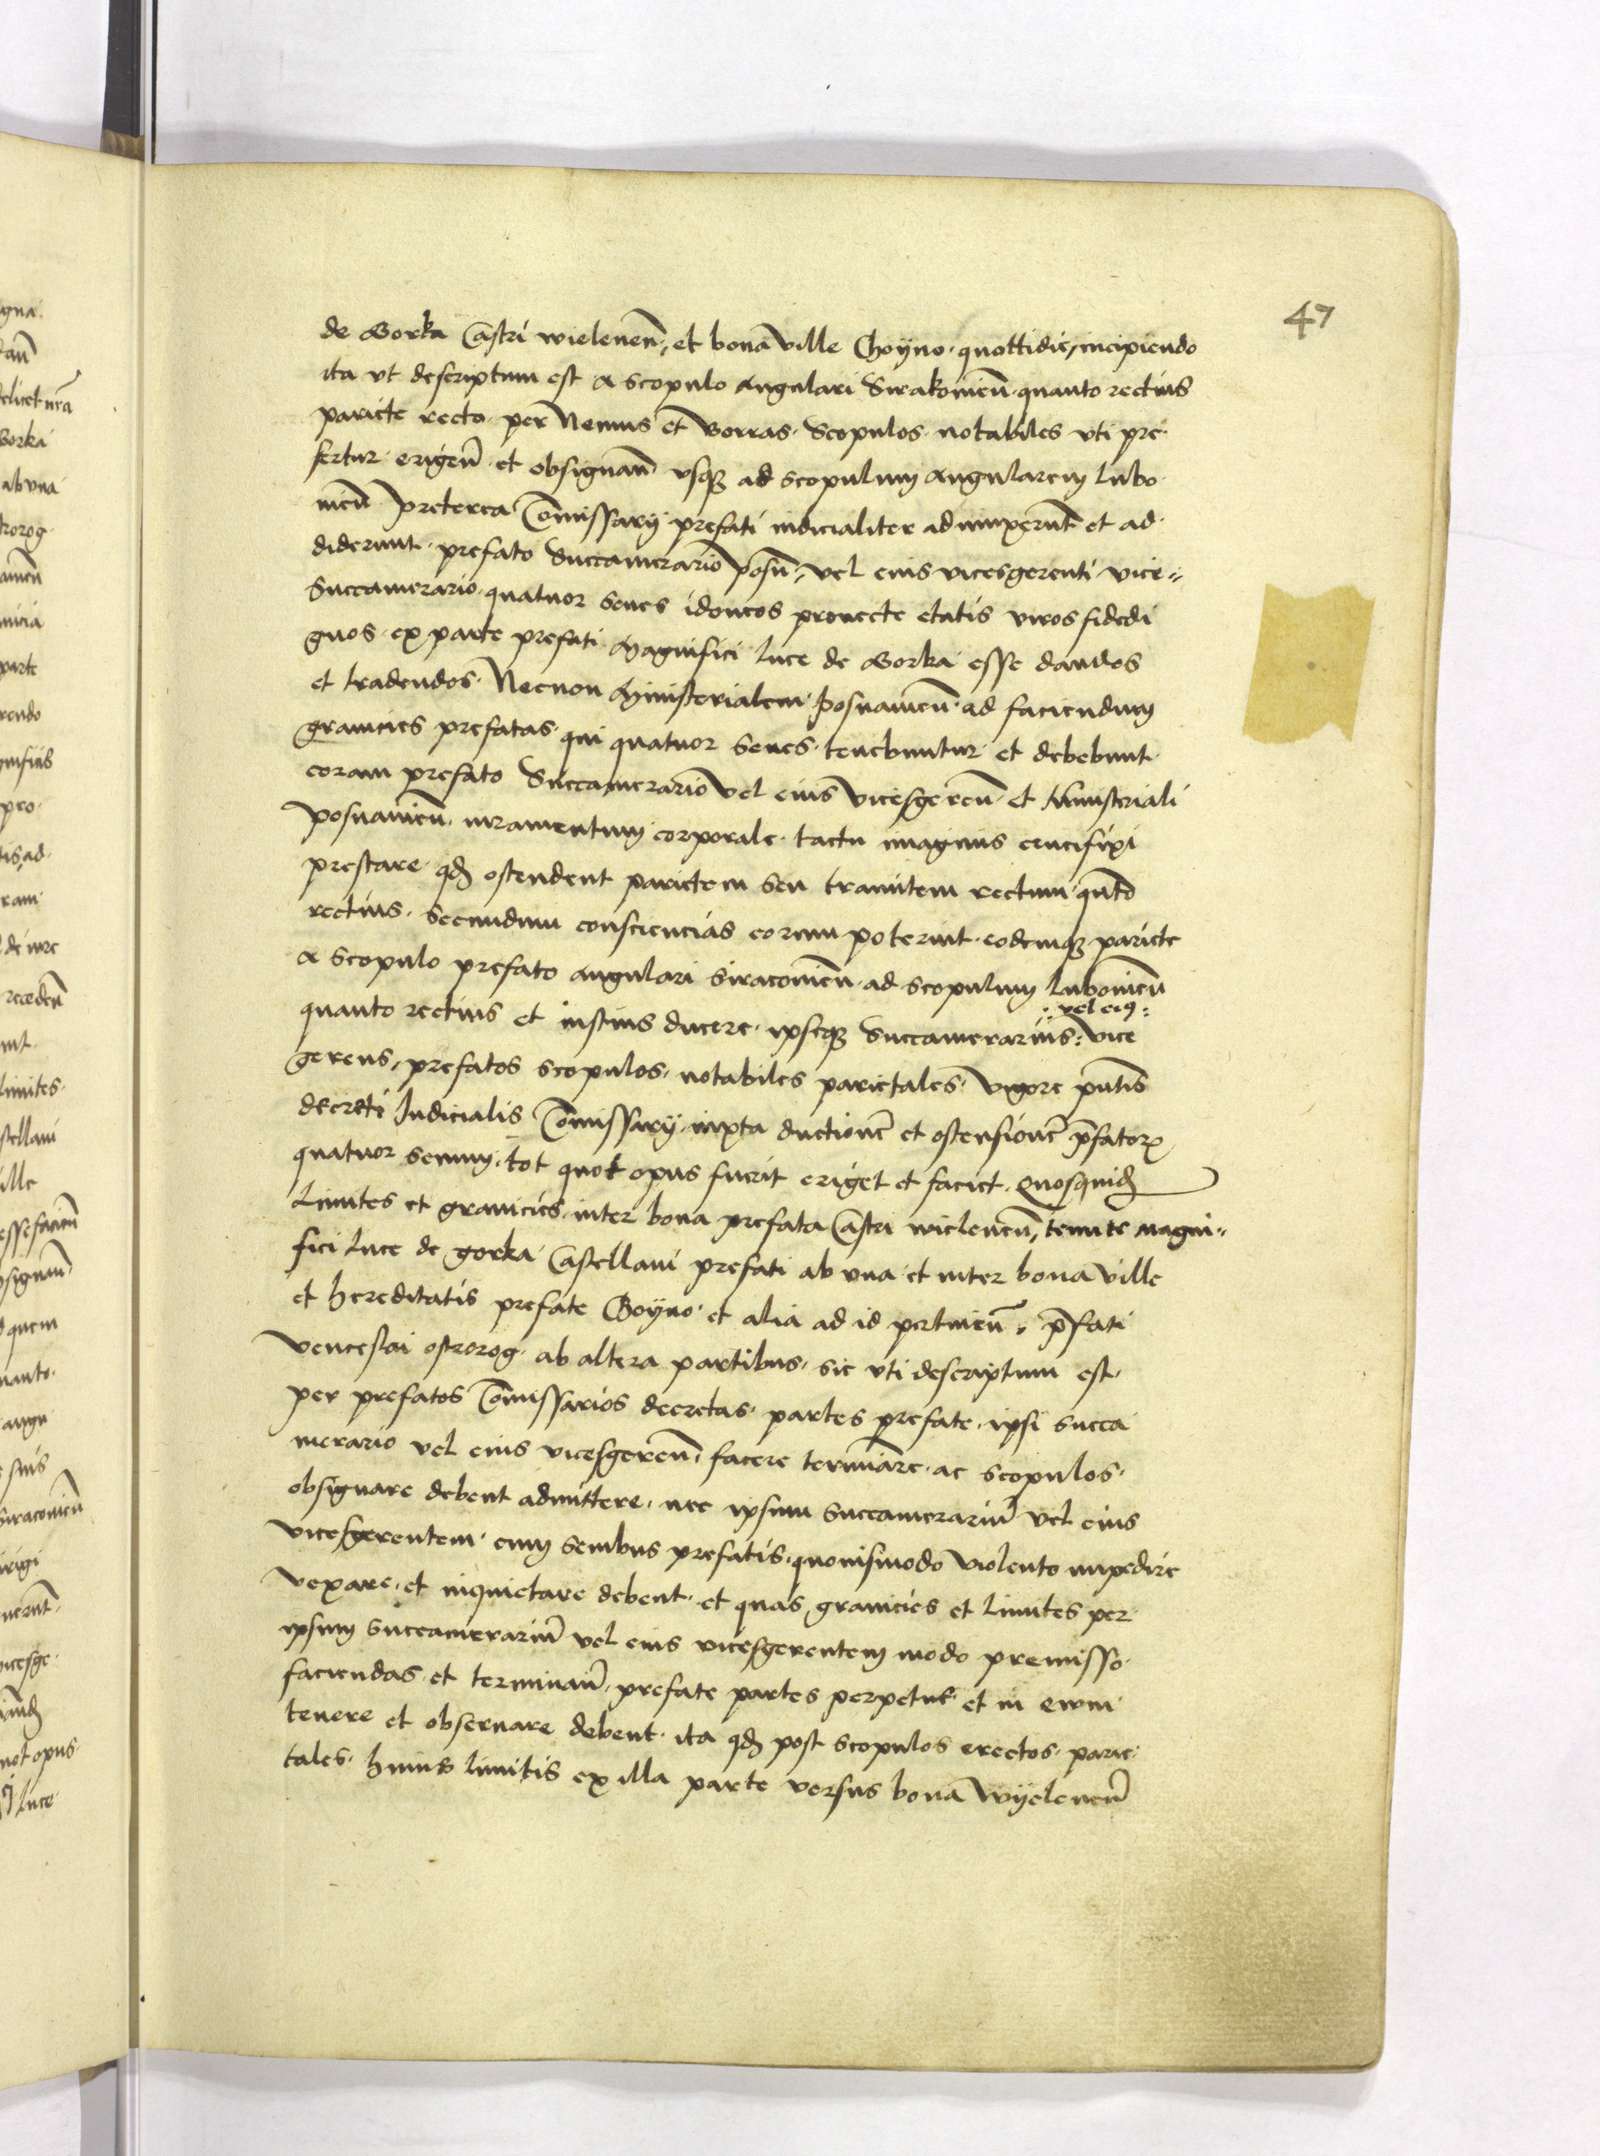 47
de Gorka Castri wielenen̄, et bona ville Choÿno quottidie, incipiendo
ita vt descriptum est a scopulo angulari Sirakonien̄ quanto rectius
pariete recto per Nemus et Borras Scopulos notabiles vti pre
fertur erigen̄ et obsignan̄ vsq3 ad scopulum angularem lubo
nien̄ Preterea Co͞missarÿ prefati iudicialiter adinuxerunt et ad
diderunt prefato Succamerario posn̄, vel eius vicesgerenti vice
Succamerario quatuor senes idoneos prouecte etatis viros fidedi
gnos ex parte prefati Magnifici luce de Gorka esse dandos
et tradendos Necnon Ministerialem posnanien̄ ad faciendum
granicies prefatas qui quatuor senes tenebuntur et debebunt
coram prefato Succamerario vel eius vicesgeren̄ et Ministeriali
posnanien̄ iuramentum corporale tactu imaginis crucifixi
prestare qd ostendent parietem seu tramitem rectum qnto
rectius secundum consciencias eorum poterint eodemq3 pariete
a scopulo prefato angulari siraconien̄ ad scopulum lubonien̄
quanto rectius et iustius ducere ipseq3 Succamerarius vel ei9 vice
gerens, prefatos scopulos notabiles parietales vigore pn̄tis
decreti Iudicialis Co͞missarÿ iuxta ductionē et ostensionē p̄fator
quatuor senum, tot quot opus fuerit eriget et faciet Quosquid
Limites et granicies inter bona prefata Castri wielenen̄, tenute magni
fici luce de gorka Castellani prefati ab vna et inter bona ville
et hereditatis prefate Choÿno et alia ad id pertinen̄, p̄fati
venceslai ostrorog ab altera partibus sic vti descriptum est
per prefatos Co͞missarios decretas partes prefate ipsi succa
merario vel eius vicesgeren̄ facere terminare ac scopulos
obsignare debent admittere nec ipsum succamerariū vel eius
vicesgerentem cum senibus prefatis quouismodo violento impedire
vexare et inquietare debent et quas granicies et limites per
ipsum succamerariū vel eius vicesgerentem modo premisso
faciendas et terminan̄ prefate partes perpetue et in ewm
tenere et obseruare debent ita qd post scopulos erectos parie
tales huius limitis ex illa parte versus bona wÿelenen̄